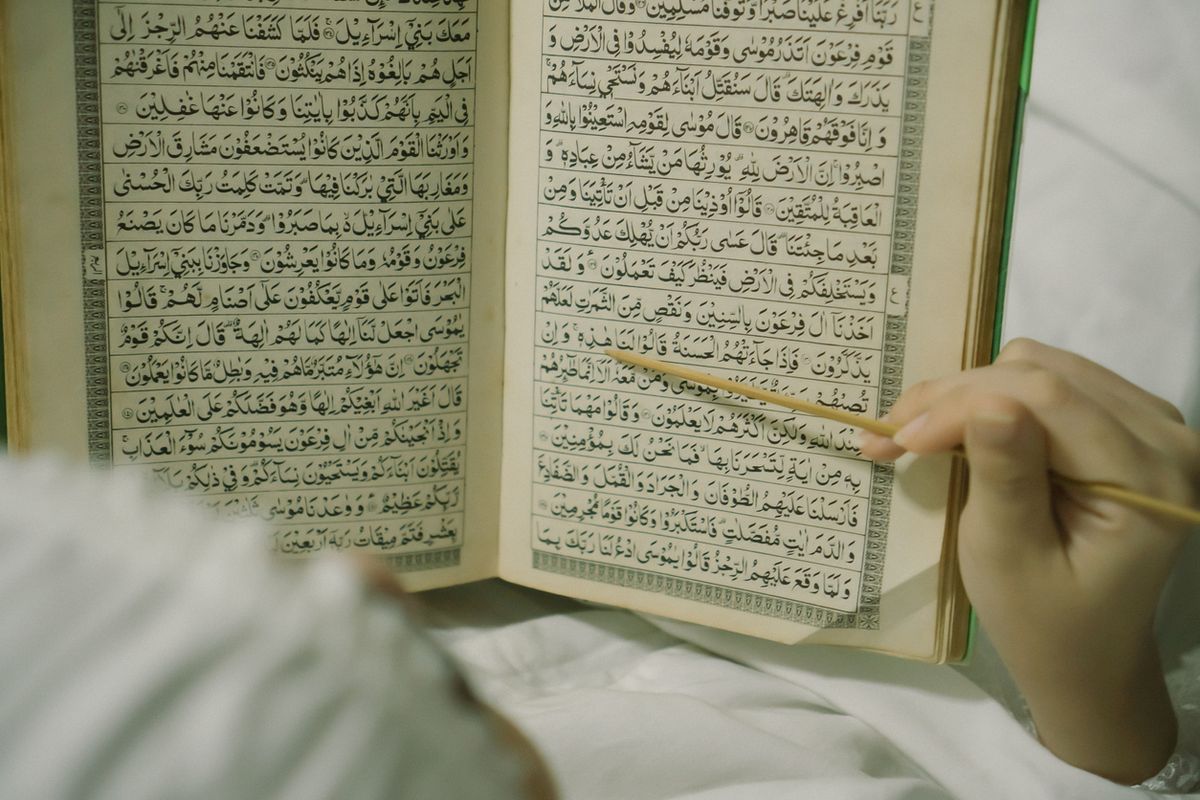 رَبَّنَا اَفْرِغْ عَلَيْنَا صَبْرًا وَّتَوَفَّنَا مُسْلِمِيْنَ ۝ وَقَالَ الْمَلَاُ مِنْ
قَوْمِ فِرْعَوْنَ اَتَذَرُ مُوْسٰى وَقَوْمَهٗ لِيُفْسِدُوْا فِى الْاَرْضِ وَ
يَذَرَكَ وَاٰلِهَتَكَ ۗ قَالَ سَنُقَتِّلُ اَبْنَآءَهُمْ وَنَسْتَحْيٖ نِسَآءَهُمْ ۚ
وَ اِنَّا فَوْقَهُمْ قَاهِرُوْنَ ۝ قَالَ مُوْسٰى لِقَوْمِهِ اسْتَعِيْنُوْا بِاللّٰهِ وَ
اصْبِرُوْا ۚ اِنَّ الْاَرْضَ لِلّٰهِ ۗ يُوْرِثُهَا مَنْ يَّشَآءُ مِنْ عِبَادِهٖ ۗ وَ
الْعَاقِبَةُ لِلْمُتَّقِيْنَ ۝ قَالُوْٓا اُوْذِيْنَا مِنْ قَبْلِ اَنْ تَاْتِيَنَا وَمِنْۢ
بَعْدِ مَا جِئْتَنَا ۗ قَالَ عَسٰى رَبُّكُمْ اَنْ يُّهْلِكَ عَدُوَّكُمْ
وَيَسْتَخْلِفَكُمْ فِى الْاَرْضِ فَيَنْظُرَ كَيْفَ تَعْمَلُوْنَ ۝ وَلَقَدْ
اَخَذْنَآ اٰلَ فِرْعَوْنَ بِالسِّنِيْنَ وَنَقْصٍ مِّنَ الثَّمَرٰتِ لَعَلَّهُمْ
يَذَّكَّرُوْنَ ۝ فَاِذَا جَآءَتْهُمُ الْحَسَنَةُ قَالُوْا لَنَا هٰذِهٖ ۚ وَاِنْ
تُصِبْهُمْ سَيِّئَةٌ يَّطَّيَّرُوْا بِمُوْسٰى وَمَنْ مَّعَهٗ ۗ اَلَآ اِنَّمَا طٰٓئِرُهُمْ
عِنْدَ اللّٰهِ وَلٰكِنَّ اَكْثَرَهُمْ لَا يَعْلَمُوْنَ ۝ وَقَالُوْا مَهْمَا تَاْتِنَا
بِهٖ مِنْ اٰيَةٍ لِّتَسْحَرَنَا بِهَا ۙ فَمَا نَحْنُ لَكَ بِمُؤْمِنِيْنَ ۝
فَاَرْسَلْنَا عَلَيْهِمُ الطُّوْفَانَ وَالْجَرَادَ وَالْقُمَّلَ وَالضَّفَادِعَ
وَالدَّمَ اٰيٰتٍ مُّفَصَّلٰتٍ ۗ فَاسْتَكْبَرُوْا وَكَانُوْا قَوْمًا مُّجْرِمِيْنَ ۝
وَلَمَّا وَقَعَ عَلَيْهِمُ الرِّجْزُ قَالُوْا يٰمُوْسَى ادْعُ لَنَا رَبَّكَ بِمَا
مَعَكَ بَنِيْٓ اِسْرَآءِيْلَ ۝ فَلَمَّا كَشَفْنَا عَنْهُمُ الرِّجْزَ اِلٰٓى
اَجَلٍ هُمْ بَالِغُوْهُ اِذَا هُمْ يَنْكُثُوْنَ ۝ فَانْتَقَمْنَا مِنْهُمْ فَاَغْرَقْنٰهُمْ
فِى الْيَمِّ بِاَنَّهُمْ كَذَّبُوْا بِاٰيٰتِنَا وَكَانُوْا عَنْهَا غٰفِلِيْنَ ۝
وَاَوْرَثْنَا الْقَوْمَ الَّذِيْنَ كَانُوْا يُسْتَضْعَفُوْنَ مَشَارِقَ الْاَرْضِ
وَمَغَارِبَهَا الَّتِيْ بٰرَكْنَا فِيْهَا ۗ وَتَمَّتْ كَلِمَتُ رَبِّكَ الْحُسْنٰى
عَلٰى بَنِيْٓ اِسْرَآءِيْلَ ۙ بِمَا صَبَرُوْا ۗ وَدَمَّرْنَا مَا كَانَ يَصْنَعُ
فِرْعَوْنُ وَقَوْمُهٗ وَمَا كَانُوْا يَعْرِشُوْنَ ۝ وَجَاوَزْنَا بِبَنِيْٓ اِسْرَآءِيْلَ
الْبَحْرَ فَاَتَوْا عَلٰى قَوْمٍ يَّعْكُفُوْنَ عَلٰٓى اَصْنَامٍ لَّهُمْ ۚ قَالُوْا
يٰمُوْسَى اجْعَلْ لَّنَآ اِلٰهًا كَمَا لَهُمْ اٰلِهَةٌ ۗ قَالَ اِنَّكُمْ قَوْمٌ
تَجْهَلُوْنَ ۝ اِنَّ هٰٓؤُلَآءِ مُتَبَّرٌ مَّا هُمْ فِيْهِ وَبٰطِلٌ مَّا كَانُوْا يَعْمَلُوْنَ ۝
قَالَ اَغَيْرَ اللّٰهِ اَبْغِيْكُمْ اِلٰهًا وَّهُوَ فَضَّلَكُمْ عَلَى الْعٰلَمِيْنَ ۝
وَاِذْ اَنْجَيْنٰكُمْ مِّنْ اٰلِ فِرْعَوْنَ يَسُوْمُوْنَكُمْ سُوْٓءَ الْعَذَابِ ۚ
يُقَتِّلُوْنَ اَبْنَآءَكُمْ وَيَسْتَحْيُوْنَ نِسَآءَكُمْ ۗ وَفِيْ ذٰلِكُمْ بَلَآءٌ
رَّبِّكُمْ عَظِيْمٌ ۝ وَوٰعَدْنَا مُوْسٰى ثَلٰثِيْنَ
بِعَشْرٍ فَتَمَّ مِيْقَاتُ رَبِّهٖٓ اَرْبَعِيْنَ